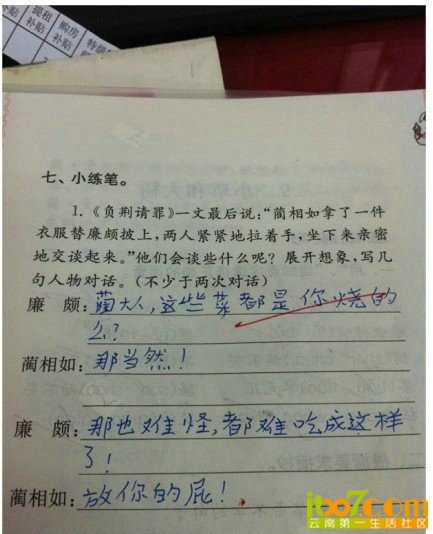 补贴
提租
补贴
购房
补贴
特级
七、小练笔。
1.《负荆请罪》一文最后说:“蔺相如拿了一件
衣服替廉颇披上,两人紧紧地拉着手,坐下来亲密
地交谈起来。”他们会谈些什么呢?展开想象,写几
句人物对话。(不少于两次对话)
廉 颇:蔺大人,这些菜都是你烧的
么?
蔺相如:那当然!
廉 颇:那也难怪,都难吃成这样
了!
蔺相如:放你的屁!
itbo7com
云南第一生活社区